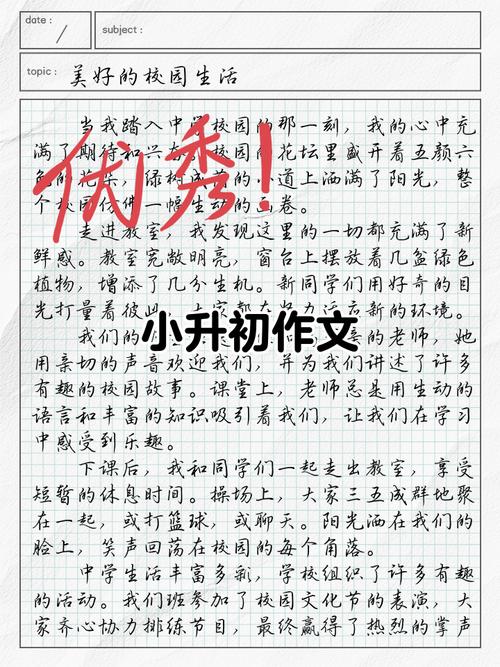 date :
subject :
topic : 美好的校园生活
当我踏入中学校园的那一刻，我的心中充
满了期待和兴奋 校园 花坛里盛开着五颜六
色的花 ，绿树成 的小道上洒满了阳光，整
个校园仿佛一幅生动的画卷。
优秀！
走进教室，我发现这里的一切都充满了新
鲜感。教室宽敞明亮，窗台上摆放着几盆绿色
植物，增添了几分生机。新同学们用好奇的目
光打量着彼此 新的环境。
小升初作文
我们的 的老师，她
用亲切的声音欢迎我们，并为我们讲述了许多
有趣的校园故事。课堂上，老师总是用生动的
语言和丰富的知识吸引着我们，让我们在学习
中感受到乐趣。
下课后，我和同学们一起走出教室，享受
短暂的休息时间。操场上，大家三五成群地聚
在一起，或打篮球，或聊天。阳光洒在我们的
脸上，笑声回荡在校园的每个角落。
中学生活丰富多彩，学校组织了许多有趣
的活动。我们班参加了校园文化节的表演，大
家齐心协力排练节目，最终赢得了热烈的掌声